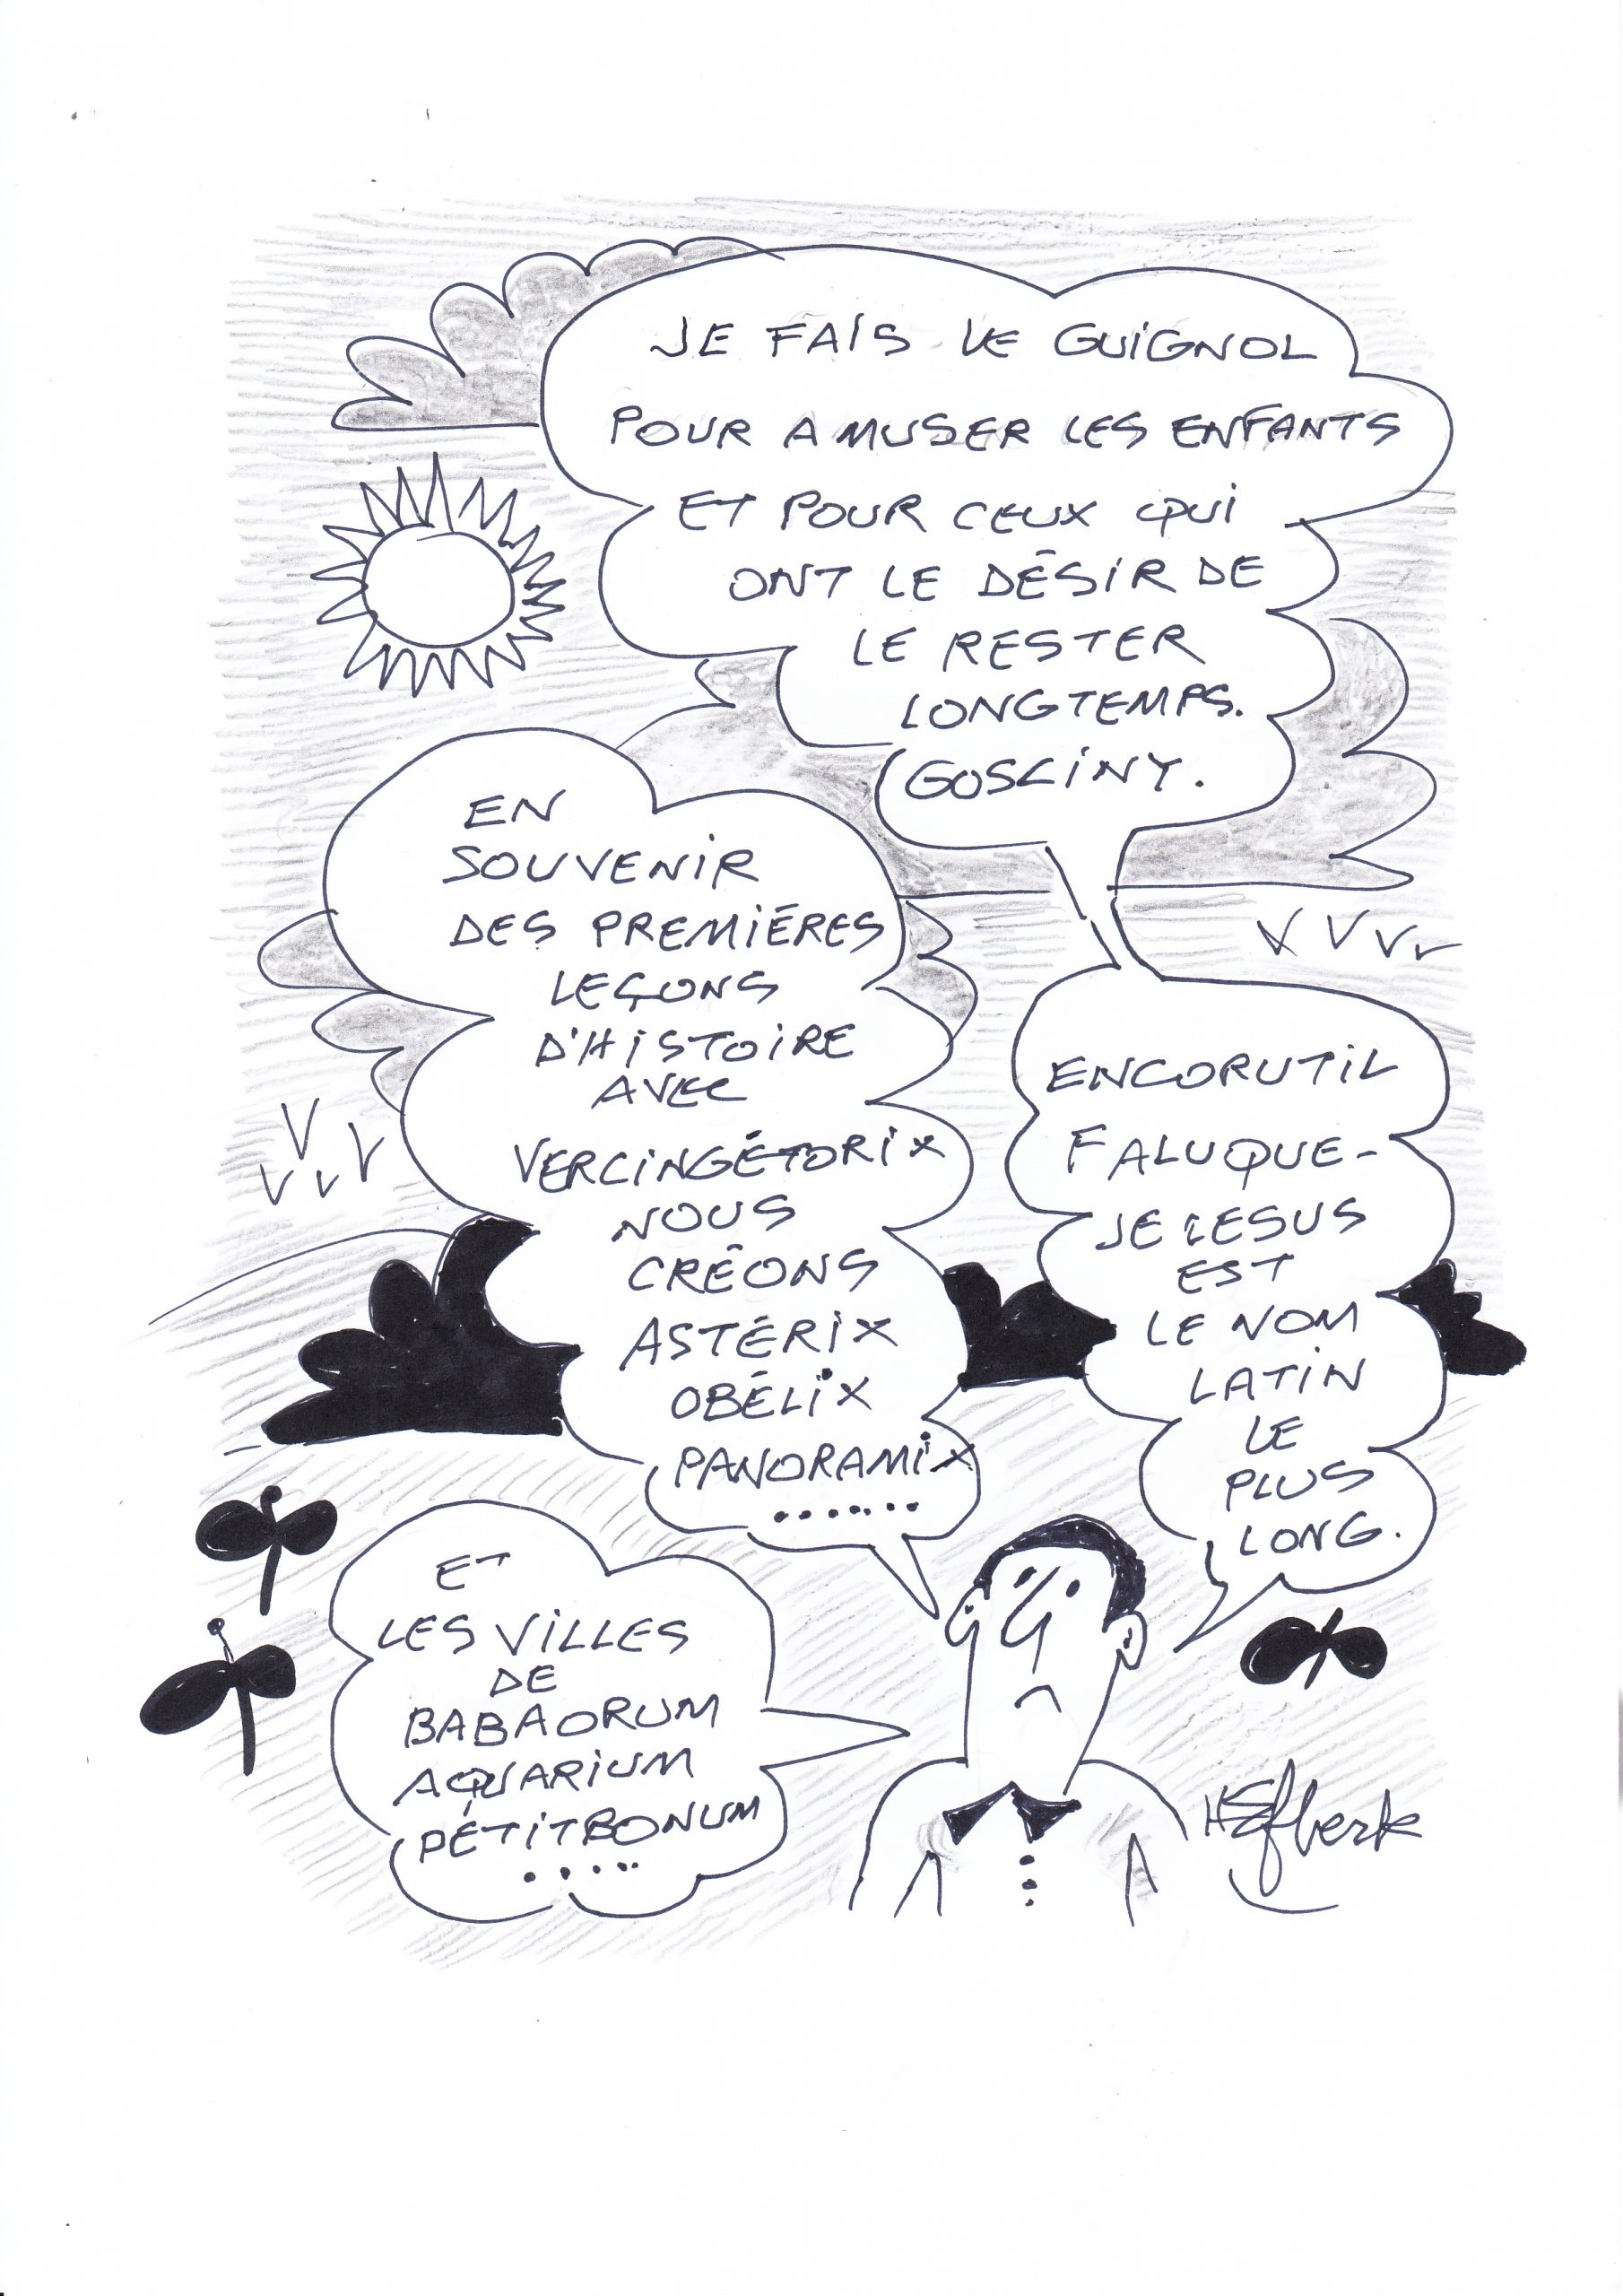 JE FAIS LE GUIGNOL
POUR AMUSER LES ENFANTS
ET POUR CEUX QUI
ONT LE DÉSIR DE
LE RESTER
LONGTEMPS.
GOSCINY.
EN
SOUVENIR
DES PREMIÉRES
LEÇONS
D'HISTOIRE
AVEC
VERCINGÉTORIX
NOUS
CRÉONS
ASTÉRIX
OBÉLIX
PANORAMIX
.......
ENCORUTIL
FALUQUE-
JE LESUS
EST
LE NOM
LATIN
LE
PLUS
LONG.
ET
LES VILLES
DE
BABAORUM
AQUARIUM
PÉTITBONUM
.....